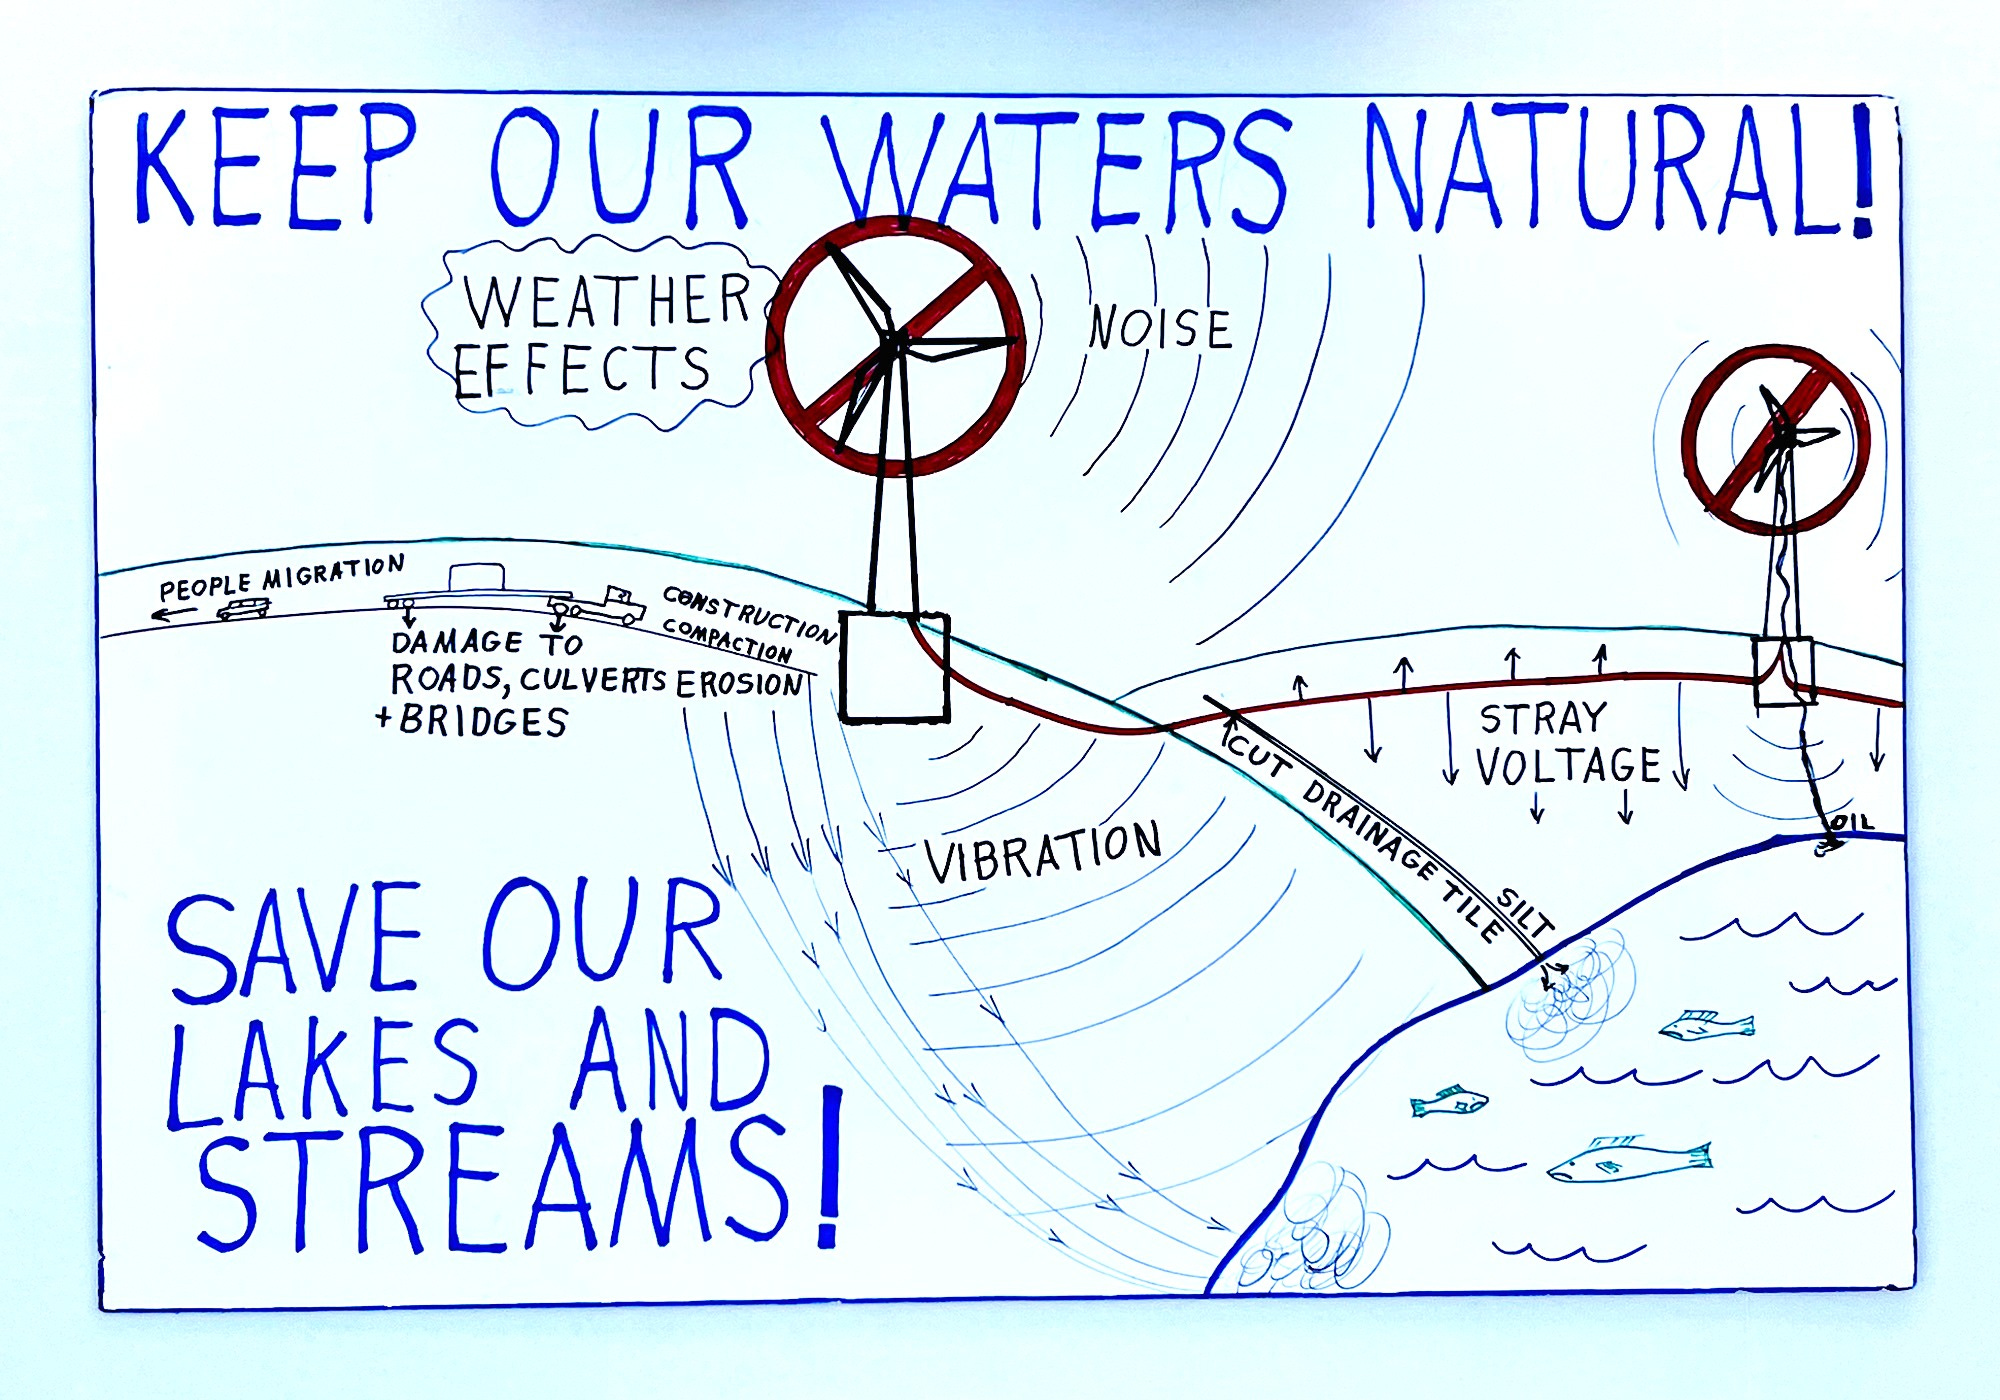 KEEP OUR WATERS NATURAL!
WEATHER
EFFECTS
NOISE
PEOPLE MIGRATION
CONSTRUCTION
COMPACTION
DAMAGE TO
ROADS, CULVERTS EROSION
+ BRIDGES
STRAY
VOLTAGE
CUT DRAINAGE TILE
SILT
OIL
VIBRATION
SAVE OUR
LAKES AND
STREAMS!